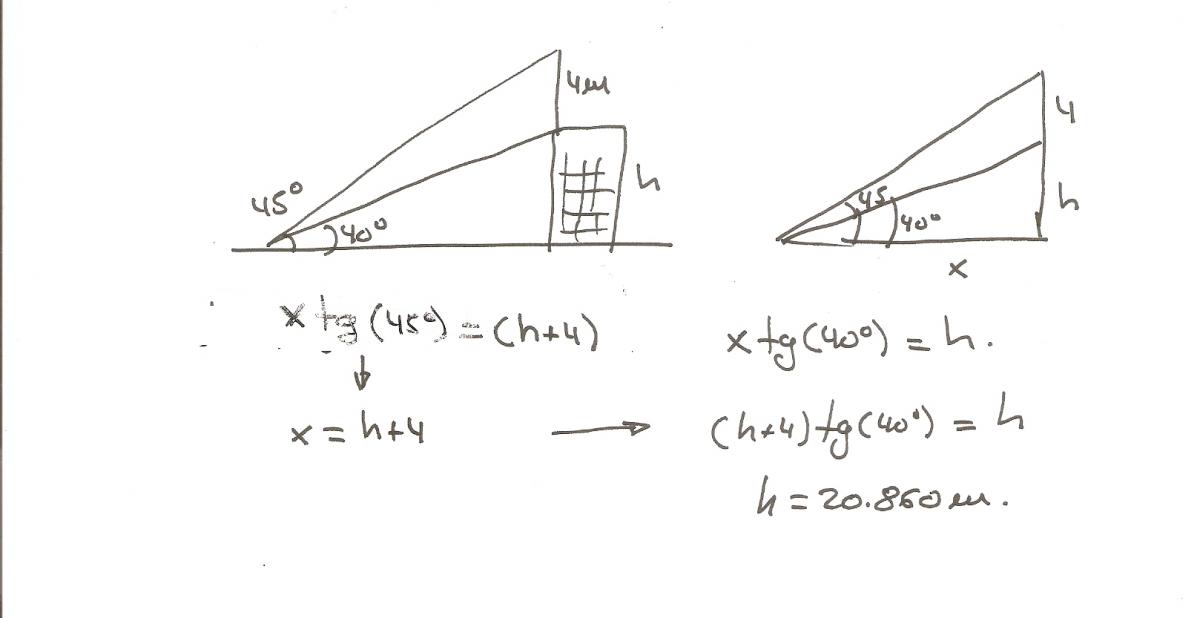 4m
h
45°
40°
4
h
45
40°
x
x tg (45°) = (h+4)
x tg (40°) = h.
↓
x = h+4 → (h+4) tg (40°) = h
h = 20.860 m.